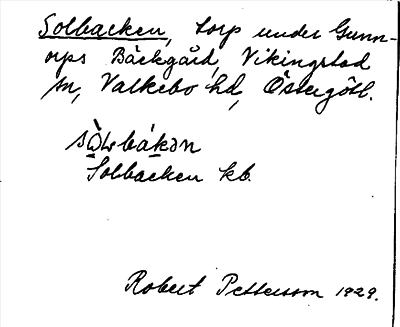 Solbacken, torp under Gunn-
orps Bäckgård, Vikingstad
sn, Valkebo hd, Östergötl.
sòlbákən
Solbacken kb.
Robert Pettersson 1929.